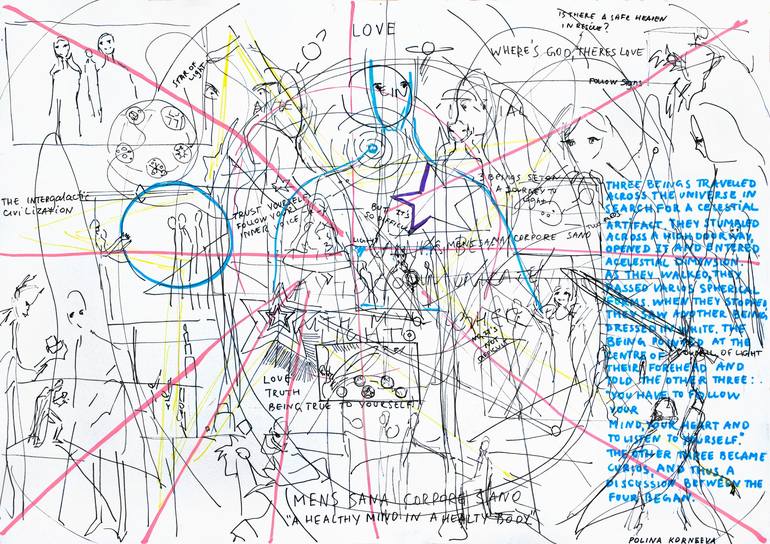 IS THERE A SAFE HEAVEN
IN RESCUE?
LOVE
WHERE'S GOD, THERES LOVE
STAR OF
LIGHT
IN
3 BEINGS SET ON
A JOURNEY TO
LIGHT
THE INTERGALACTIC
CIVILIZATION
TRUST YOURSELF
FOLLOW YOUR
INNER VOICE
BUT IT'S
SO DIFFICULT
LIGHT
MENS SANA CORPORE SANO
THREE BEINGS TRAVELLED
ACROSS THE UNIVERSE IN
SEARCH FOR A CELESTIAL
ARTIFACT. THEY STUMBLED
ACROSS A HIGH DOORWAY
OPENED IT AND ENTERED
A CELESTIAL DIMENSION.
AS THEY WALKED, THEY
PASSED VARIOS SPHERICAL
FORMS. WHEN THEY STOPPED
THEY SAW ANOTHER BEING
DRESSED IN WHITE. THE
BEING POINTED AT THE
CENTRE OF
OF LIGHT
THEIR FOREHEAD AND
TOLD THE OTHER THREE:
"YOU HAVE TO FOLLOW
YOUR
MIND, YOUR HEART AND
TO LISTEN TO YOURSELF."
THE OTHER THREE BECAME
CURIOS, AND THUS A
DISCUSSION BETWEEN THE
FOUR BEGAN.
LOVE
TRUTH
BEING TRUE TO YOURSELF
MENS SANA CORPORE SANO
"A HEALTHY MIND IN A HEALTY BODY"
POLINA KORNEEVA